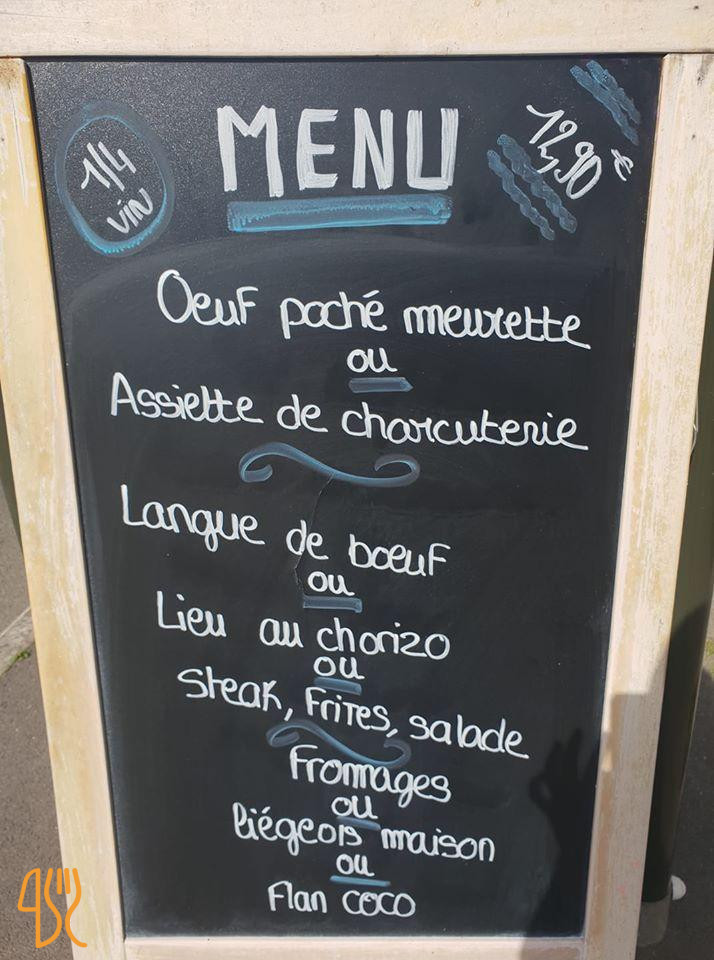 1/4
vin
MENU
12,90
€
Oeuf poché meurette
ou
Assiette de charcuterie
Langue de boeuf
ou
Lieu au chorizo
ou
steak, frites, salade
fromages
ou
liégeois maison
ou
flan coco